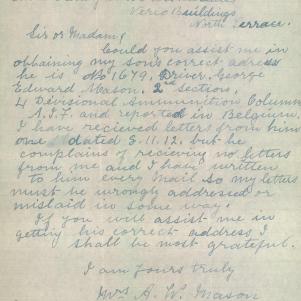 Verco Buildings
North Terrace.
Sir or Madam,
Could you assist me in
obtaining my son's correct adress
he is No 1679, Driver, George
Edward Mason. 2nd Section,
4 Divisional Ammunition Column
A.I.F. and reported in Belgium.
I have recieved letters from him
one dated 3.11.12. but he
complains of recieving no letters
from me and I have written
to him every mail so my letters
must be wrongly addressed or
mislaid in some way.
If you will assist me in
getting his correct address I
shall be most grateful.
I am yours truly
Mrs A. W. Mason